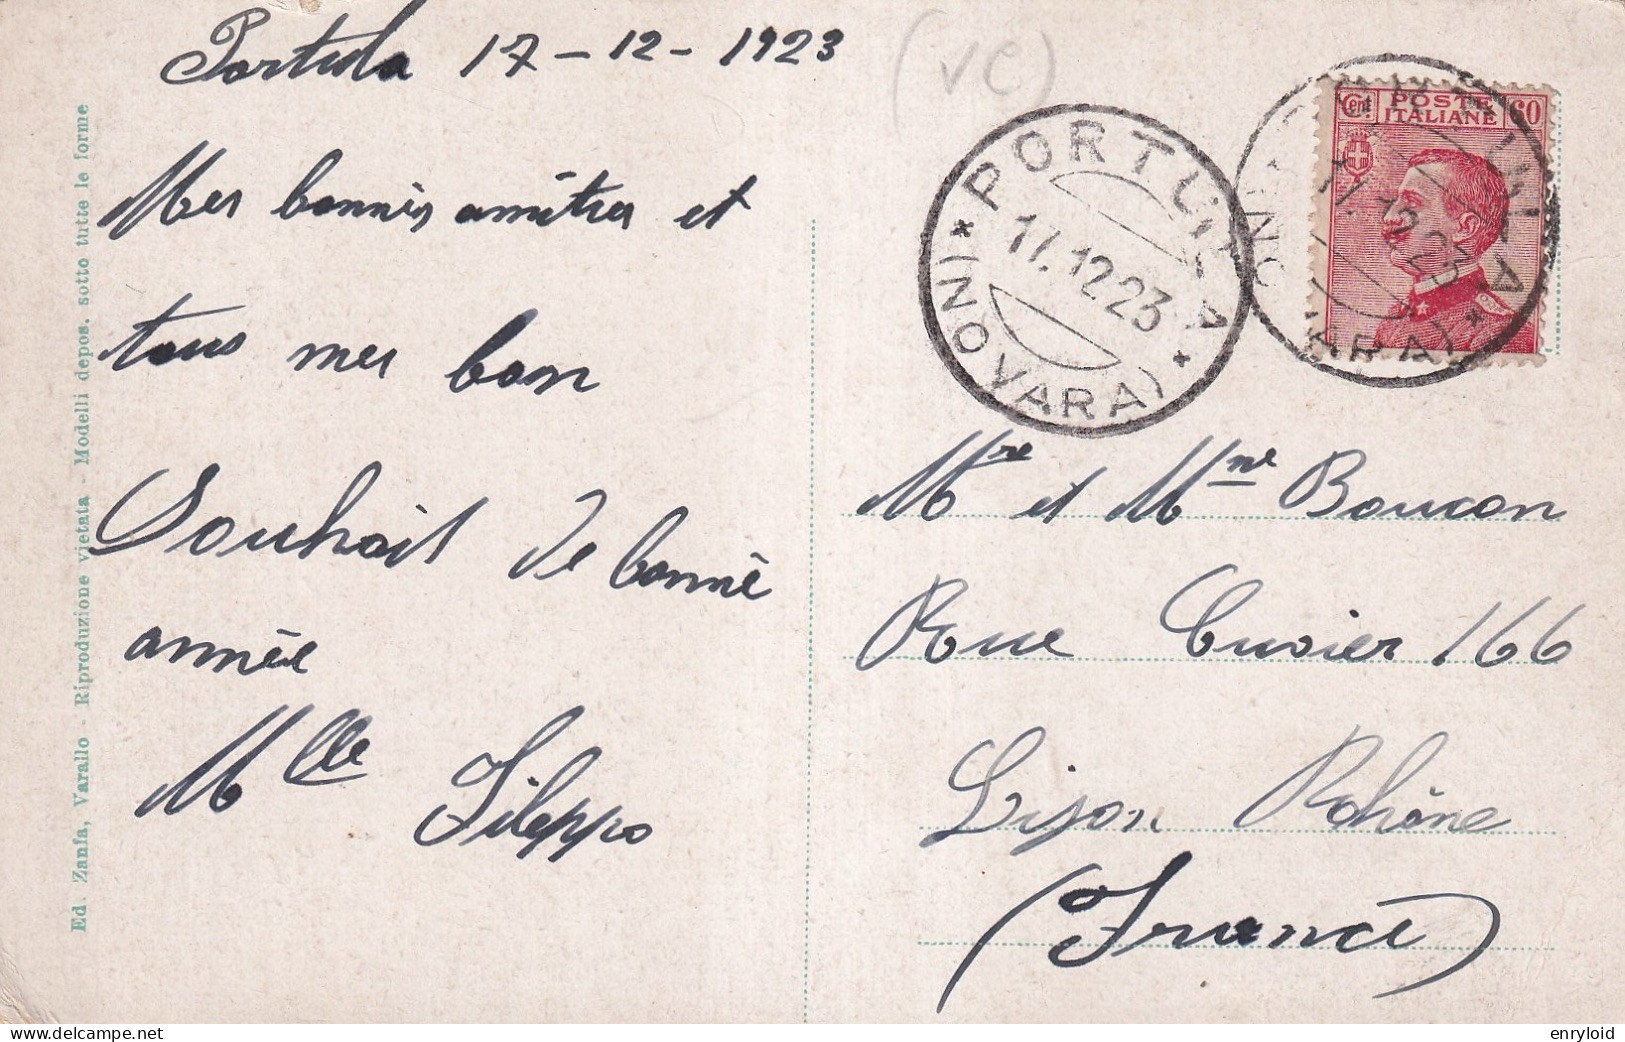 Portula 17-12-1923
(ve)
Mes bonnès amitier et
tous mes bon
Souhait de bonnè
annèe
Mlle Fileppo
Ed. Zanfa, Varallo - Riproduzione vietata - Modelli depos. sotto tutte le forme
PORTULA
17.12.23
(NOVARA)
Cent. POSTE ITALIANE 60
PORTULA
17.12.23
(NOVARA)
Mre et Mme Boucon
Rue Cuvier 166
Lijon Rhône
(France)
enryloid
delcampe.net